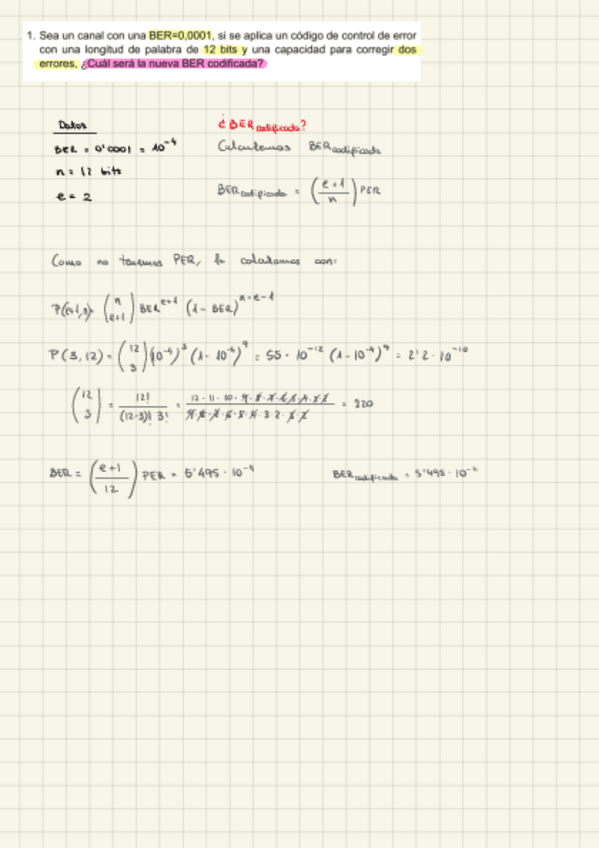 1. Sea un canal con una BER=0,0001, si se aplica un código de control de error
con una longitud de palabra de 12 bits y una capacidad para corregir dos
errores, ¿Cuál será la nueva BER codificada?
Datos
BER = 0'0001 = 10⁻⁴
n = 12 bits
e = 2
¿BER codificada?
Calculamos BER codificada
BER codificada = (e+1 / n) PER
Como no tenemos PER, la calculamos con:
P(e+1,n) = (n / e+1) BER^(e+1) (1 - BER)^(n-e-1)
P(3,12) = (12 / 3) (10⁻⁴)³ (1 - 10⁻⁴)⁹ = 55 · 10⁻¹² (1 - 10⁻⁴)⁹ = 2'2 · 10⁻¹⁰
(12 / 3) = 12! / (12-3)! 3! = 12 · 11 · 10 · 9 · 8 · 7 · 6 · 5 · 4 · 3 · 2 / 9 · 8 · 7 · 6 · 5 · 4 · 3 · 2 · 3 · 2 = 220
BER = (e+1 / 12) PER = 5'495 ·
BER codificada = 5'495 ·